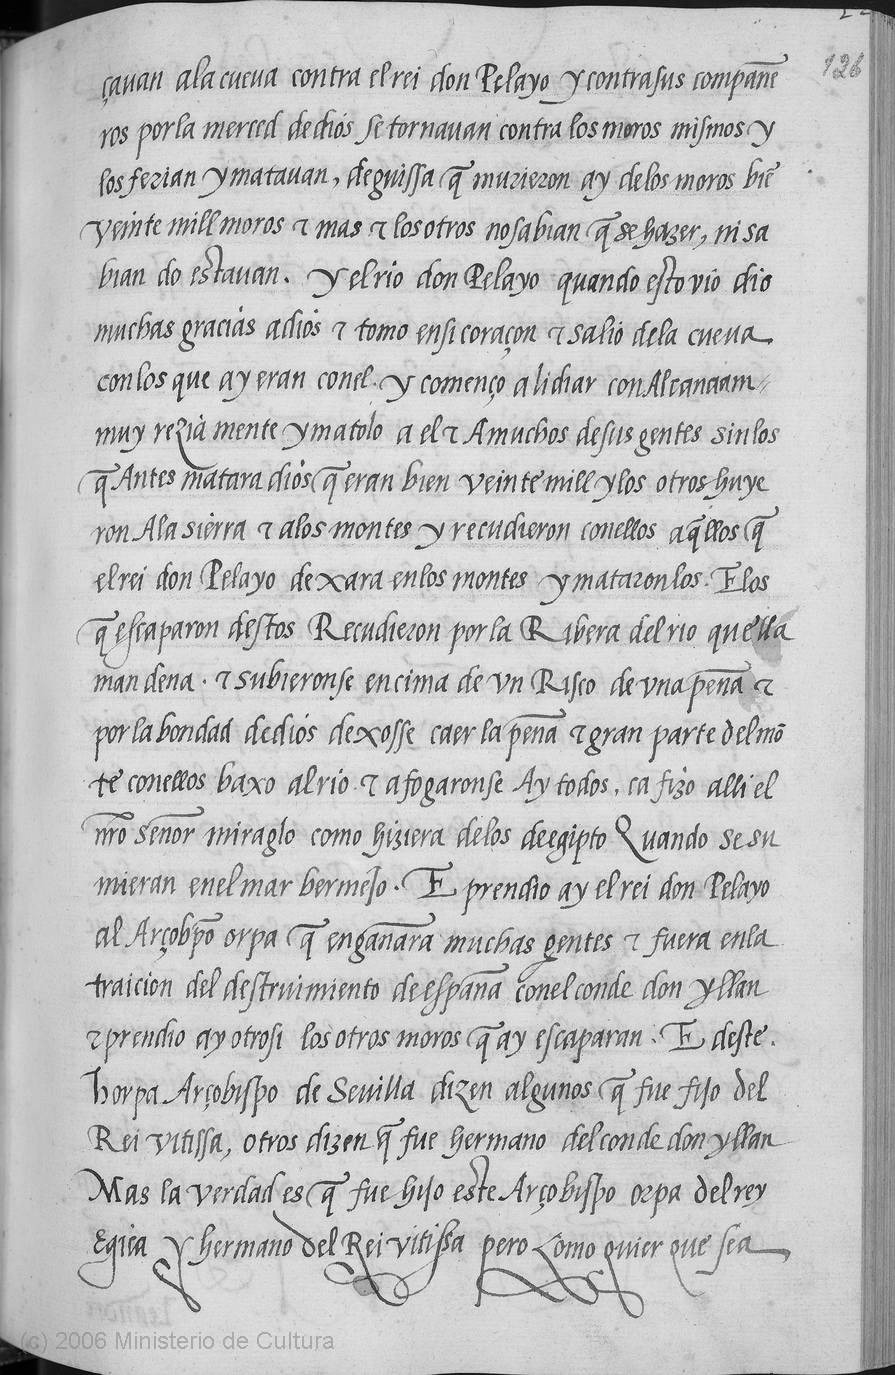 126
çauan ala cueua contra el rei don Pelayo y contra sus compan̄e
ros por la merced de dios se tornauan contra los moros mismos y
los ferian y matauan, de guissa q̄ murieron ay de los moros biē
veinte mill moros ⁊ mas ⁊ los otros no sabian q̄ se hazer, ni sa
bian do estauan. y el rio don Pelayo quando esto vio dio
muchas gracias a dios ⁊ tomo en si coraçon ⁊ salio dela cueua
con los que ay eran conel. y començo a lidiar con Alcanaam
muy reziamente y matolo a el ⁊ A muchos de sus gentes sin los
q̄ Antes matara dios q̄ eran bien veinte mill y los otros huye
ron Ala sierra ⁊ a los montes y recudieron conellos aq̄llos q̄
el rei don Pelayo dexara en los montes y mataron los. E los
q̄ escaparon destos Recudieron por la Ribera del rio que lla
man dena. ⁊ subieronse encima de vn Risco de vna pen̄a ⁊
por la bondad de dios dexosse caer la pen̄a ⁊ gran parte del mō
te conellos baxo al rio. ⁊ afogaronse Ay todos, ca fizo alli el
nr̄o sen̄or miraglo como hiziera de los de egipto Quando se su
mieran enel mar bermejo. E prendio ay el rei don Pelayo
al Arçobp̄o orpa q̄ engan̄ara muchas gentes ⁊ fuera en la
traicion del destruimiento de espan̄a conel conde don yllan
⁊ prendio ay otrosi los otros moros q̄ ay escaparan. E deste.
horpa Arçobispo de Seuilla dizen algunos q̄ fue fijo del
Rei vitissa, otros dizen q̄ fue hermano del conde don yllan
Mas la verdad es q̄ fue hijo este Arçobispo orpa del rey
Egica y hermano del Rei vitissa pero como quier que sea
(c) 2006 Ministerio de Cultura